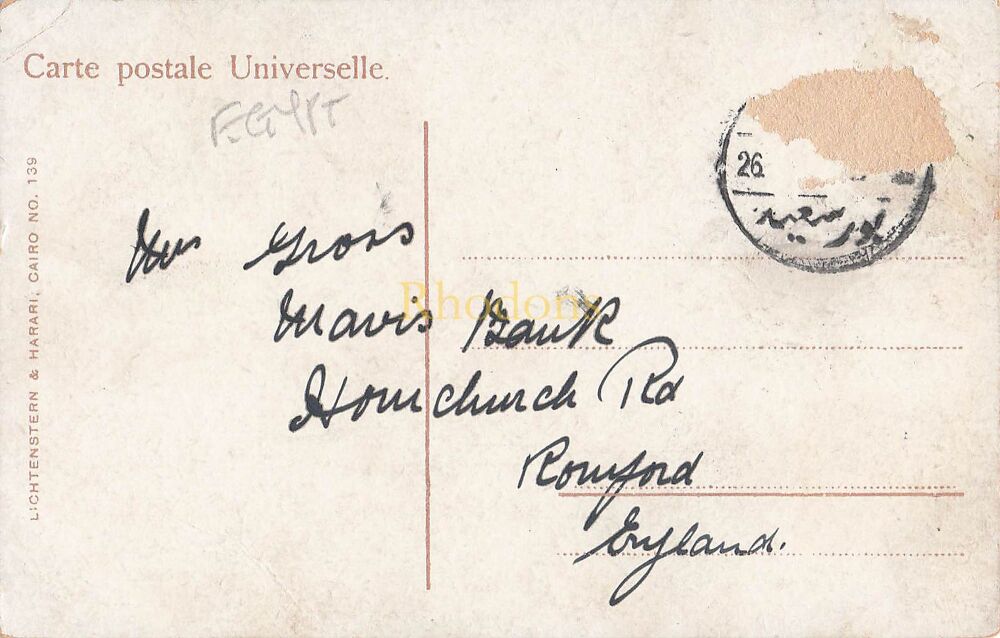 Carte postale Universelle.
EGYPT
LICHTENSTERN & HARARI, CAIRO NO. 139
26.
بور سعيد
Mrs Gross
Mavis Bank
Hornchurch Rd
Romford
England.
Rhodons